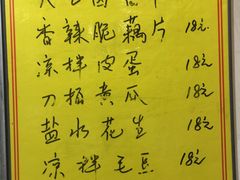 香辣脆藕片 18元
凉拌皮蛋 18元
刀拍黄瓜 18元
盐水花生 18元
凉拌毛豆 18元